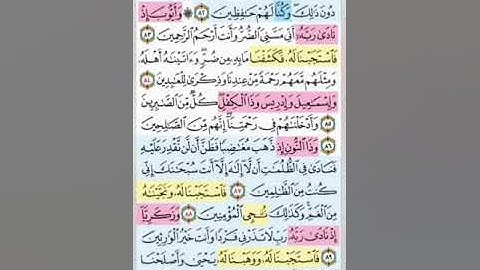 دُونَ ذَٰلِكَ ۖ وَكُنَّا لَهُمْ حَافِظِينَ ٨٢ ۞ وَأَيُّوبَ إِذْ
نَادَىٰ رَبَّهُ أَنِّي مَسَّنِيَ الضُّرُّ وَأَنتَ أَرْحَمُ الرَّاحِمِينَ ٨٣
فَاسْتَجَبْنَا لَهُ فَكَشَفْنَا مَا بِهِ مِن ضُرٍّ ۖ وَآتَيْنَاهُ أَهْلَهُ
وَمِثْلَهُم مَّعَهُمْ رَحْمَةً مِّنْ عِندِنَا وَذِكْرَىٰ لِلْعَابِدِينَ ٨٤
وَإِسْمَاعِيلَ وَإِدْرِيسَ وَذَا الْكِفْلِ ۖ كُلٌّ مِّنَ الصَّابِرِينَ
٨٥ وَأَدْخَلْنَاهُمْ فِي رَحْمَتِنَا ۖ إِنَّهُم مِّنَ الصَّالِحِينَ
٨٦ وَذَا النُّونِ إِذ ذَّهَبَ مُغَاضِبًا فَظَنَّ أَن لَّن نَّقْدِرَ عَلَيْهِ
فَنَادَىٰ فِي الظُّلُمَاتِ أَن لَّا إِلَٰهَ إِلَّا أَنتَ سُبْحَانَكَ إِنِّي
كُنتُ مِنَ الظَّالِمِينَ ٨٧ فَاسْتَجَبْنَا لَهُ وَنَجَّيْنَاهُ
مِنَ الْغَمِّ ۚ وَكَذَٰلِكَ نُنجِي الْمُؤْمِنِينَ ٨٨ وَزَكَرِيَّا
إِذْ نَادَىٰ رَبَّهُ رَبِّ لَا تَذَرْنِي فَرْدًا وَأَنتَ خَيْرُ الْوَارِثِينَ
٨٩ فَاسْتَجَبْنَا لَهُ وَوَهَبْنَا لَهُ يَحْيَىٰ وَأَصْلَحْنَا